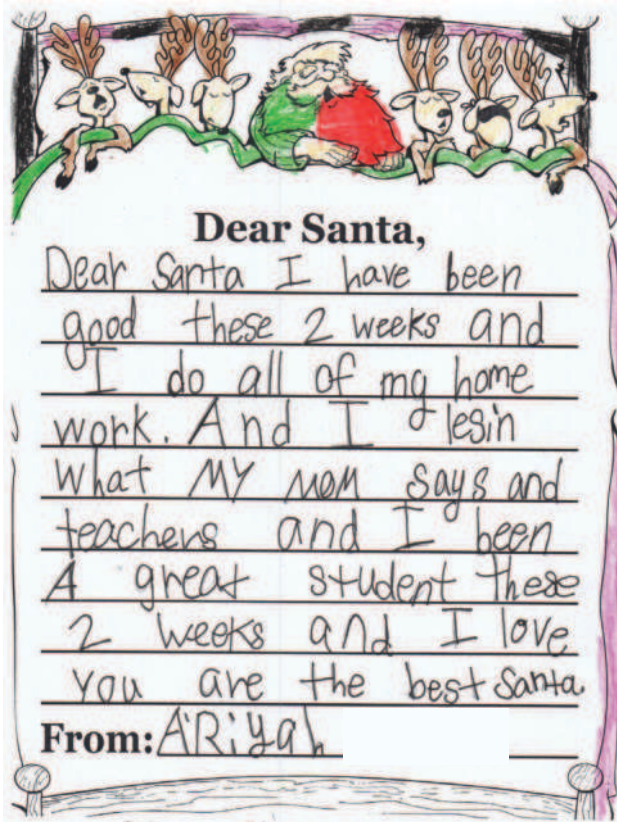 Dear Santa,
Dear Santa I have been
good these 2 weeks and
I do all of my home
work. And I lesin
What MY MOM says and
teachers and I been
A great student these
2 weeks and I love
you are the best Santa.
From: A'Riyah